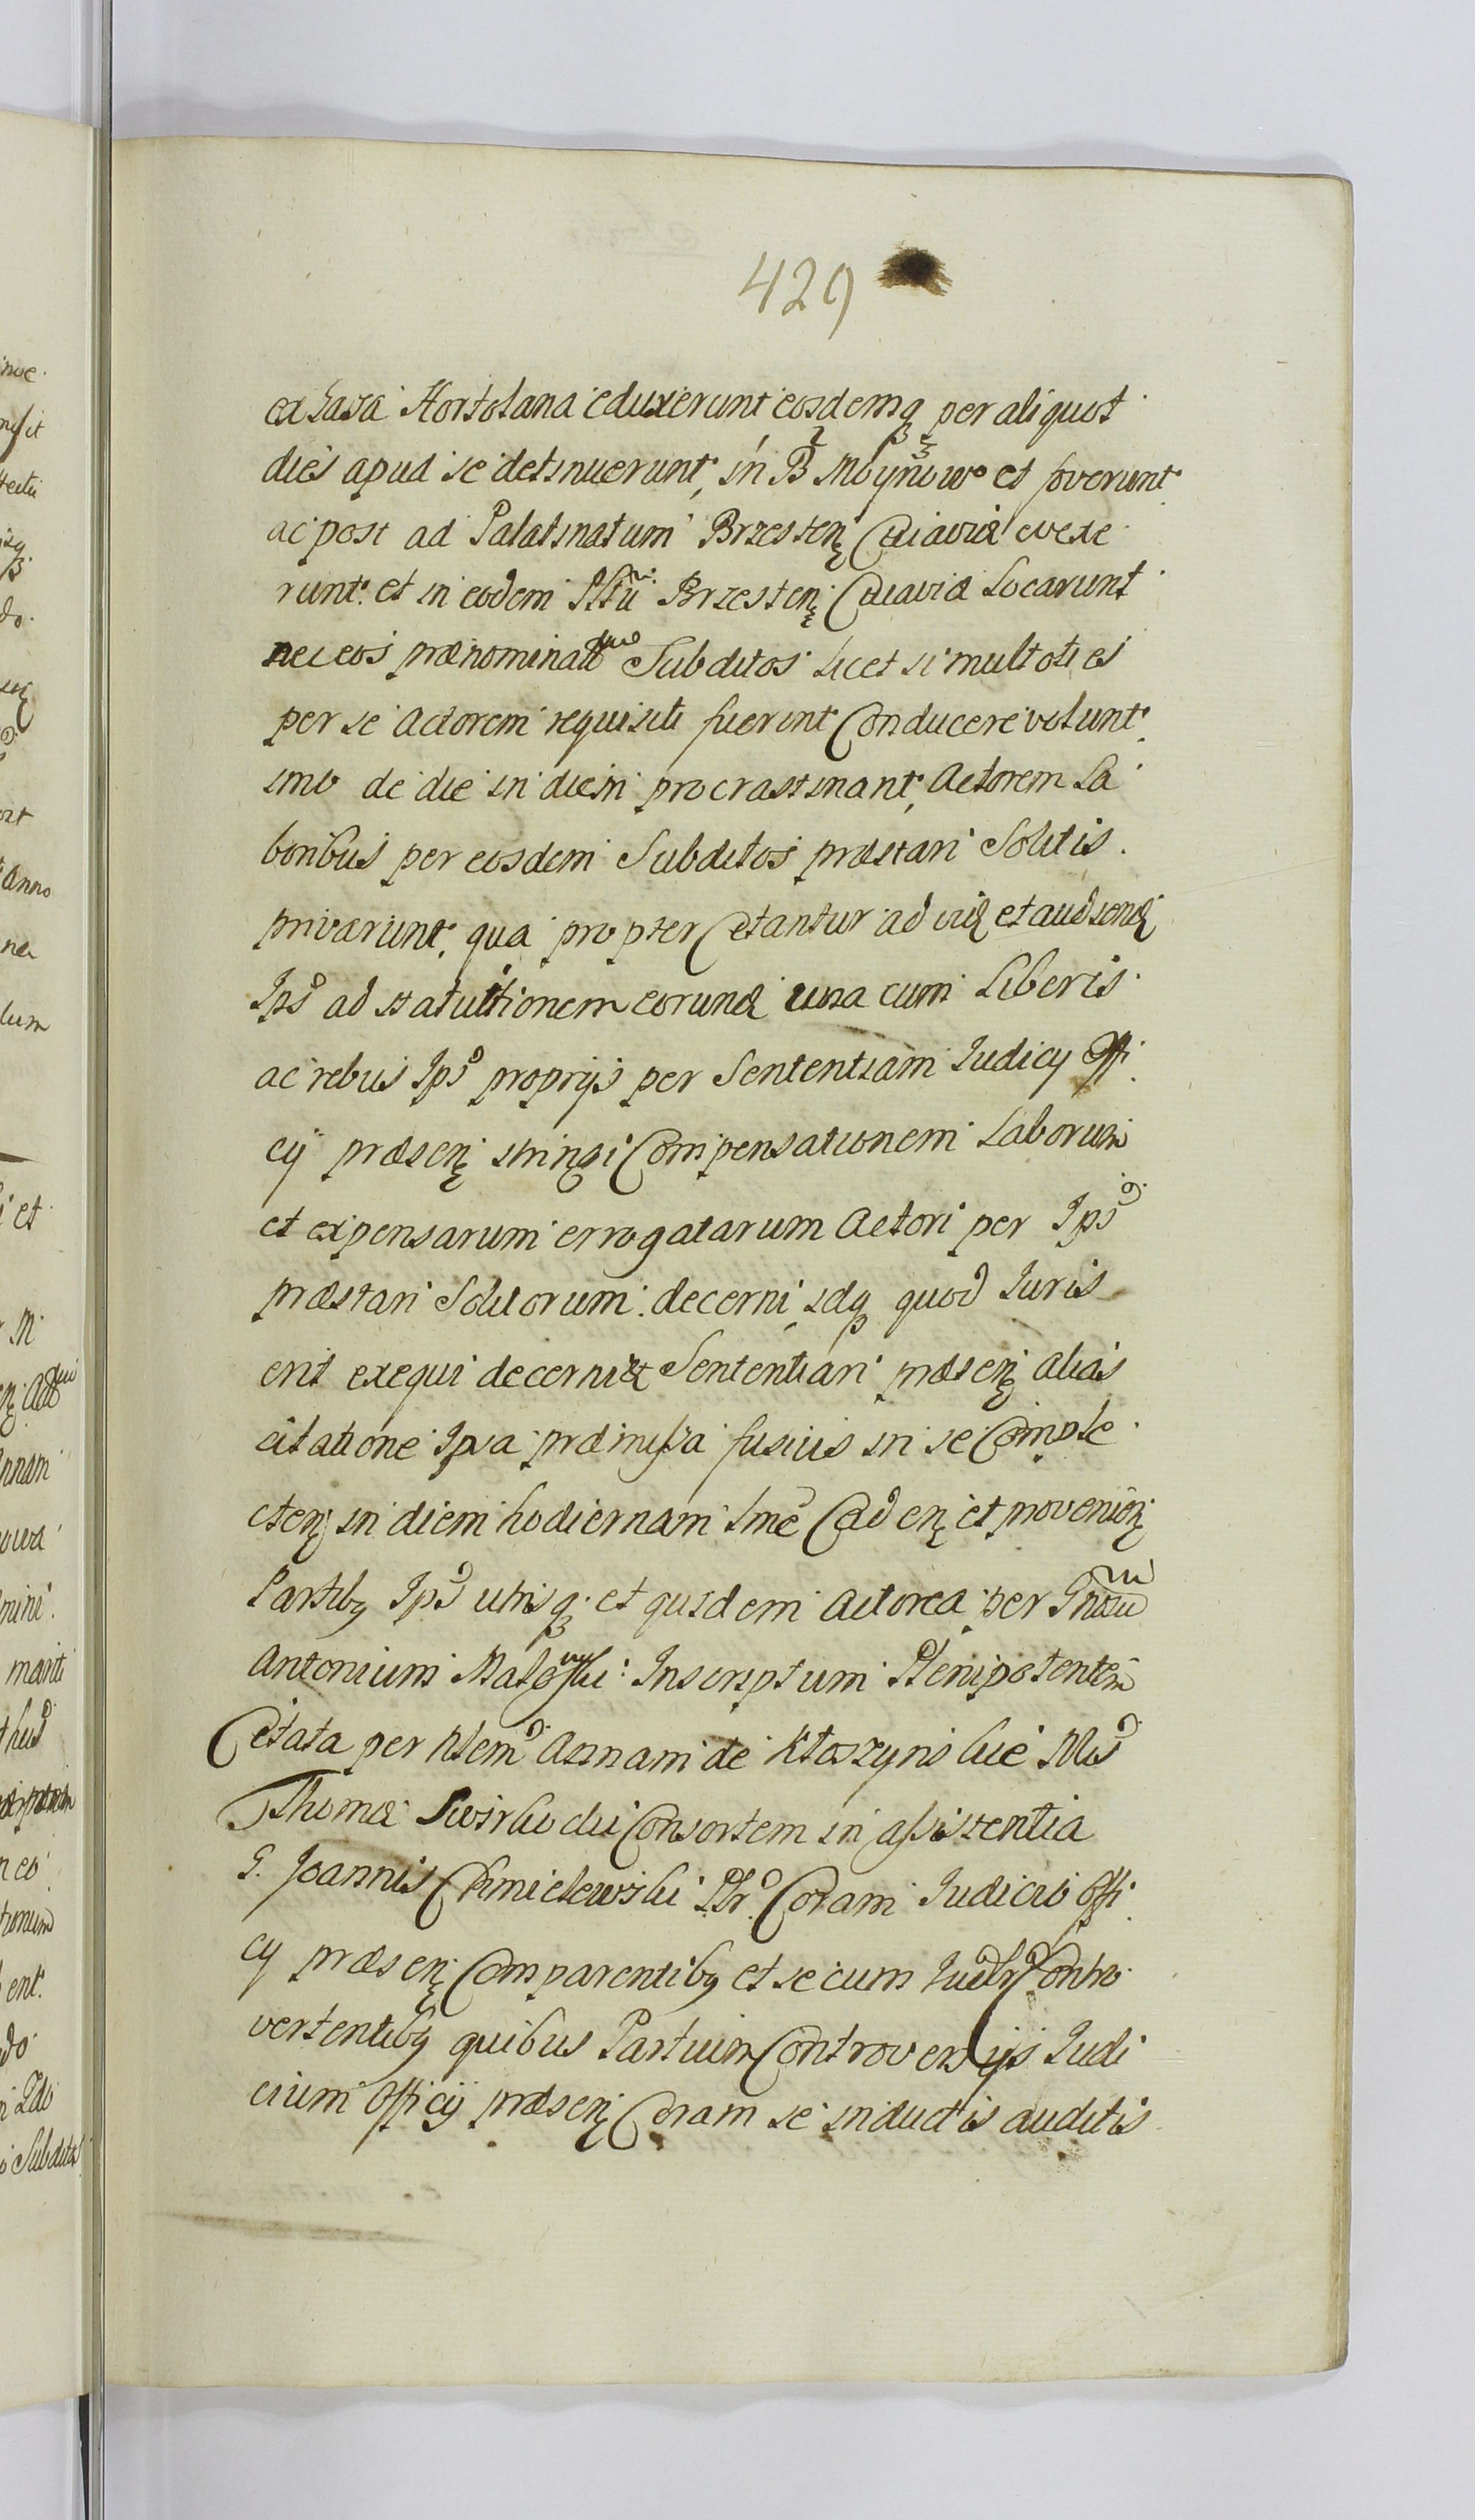 429
ex Casa Hortolana eduxerunt eosdemq per aliquot
dies apud se detinuerunt, in B Moynowo et foverunt
ac post ad Palatinatum Brzesten Cuiaviæ evexe
runt et in eodem Plttu Brzesten Cuiaviæ Locarunt
nec eos prænominatos Subditos licet simultoties
per se Actorem requisiti fuerint Conducere volunt
imo de die in diem procrastinant, Actorem La
boribus per eosdem Subditos præstari Solitis
privarunt, qua propter Citantur ad vid et audiend
Ips ad statuitionem eorund una cum Liberis
ac rebus Ips proprijs per Sententiam Iudicij Offi
cij præsen stringi Compensationem Laborum
et expensarum errogatarum Actori per Ips
præstari Solitorum decerni, idq quod Iuris
erit exequi decerni Sententiari præsen alias
citatione Ipsa præmissa fusius in se Comple
cten in diem hodiernam lme Caden et provenien
Partibg Ips utrisq et quidem Actorea per Gnosu
Antonium Malewski Inscriptum Plenipotentem
Citata per Nlem Annam de Kłoszynskie Mis
Thomæ Swirko dii Consortem in assistentia
G. Joannis Chmielewski Ptr Coram Iudicio Offi
cij præsen Comparentibg et secum Iudlr Contro
vertentibg quibus Partium Controversijs Iudi
cium Officij præsen Coram se inductis auditis